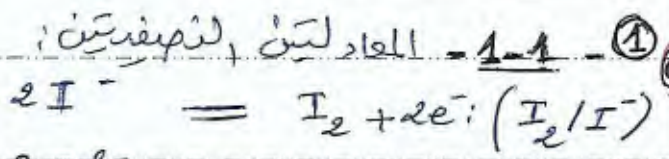 ① - 1-1 - المعادلتين النصفيتين:
2I⁻ = I₂ + 2e⁻ : (I₂/I⁻)